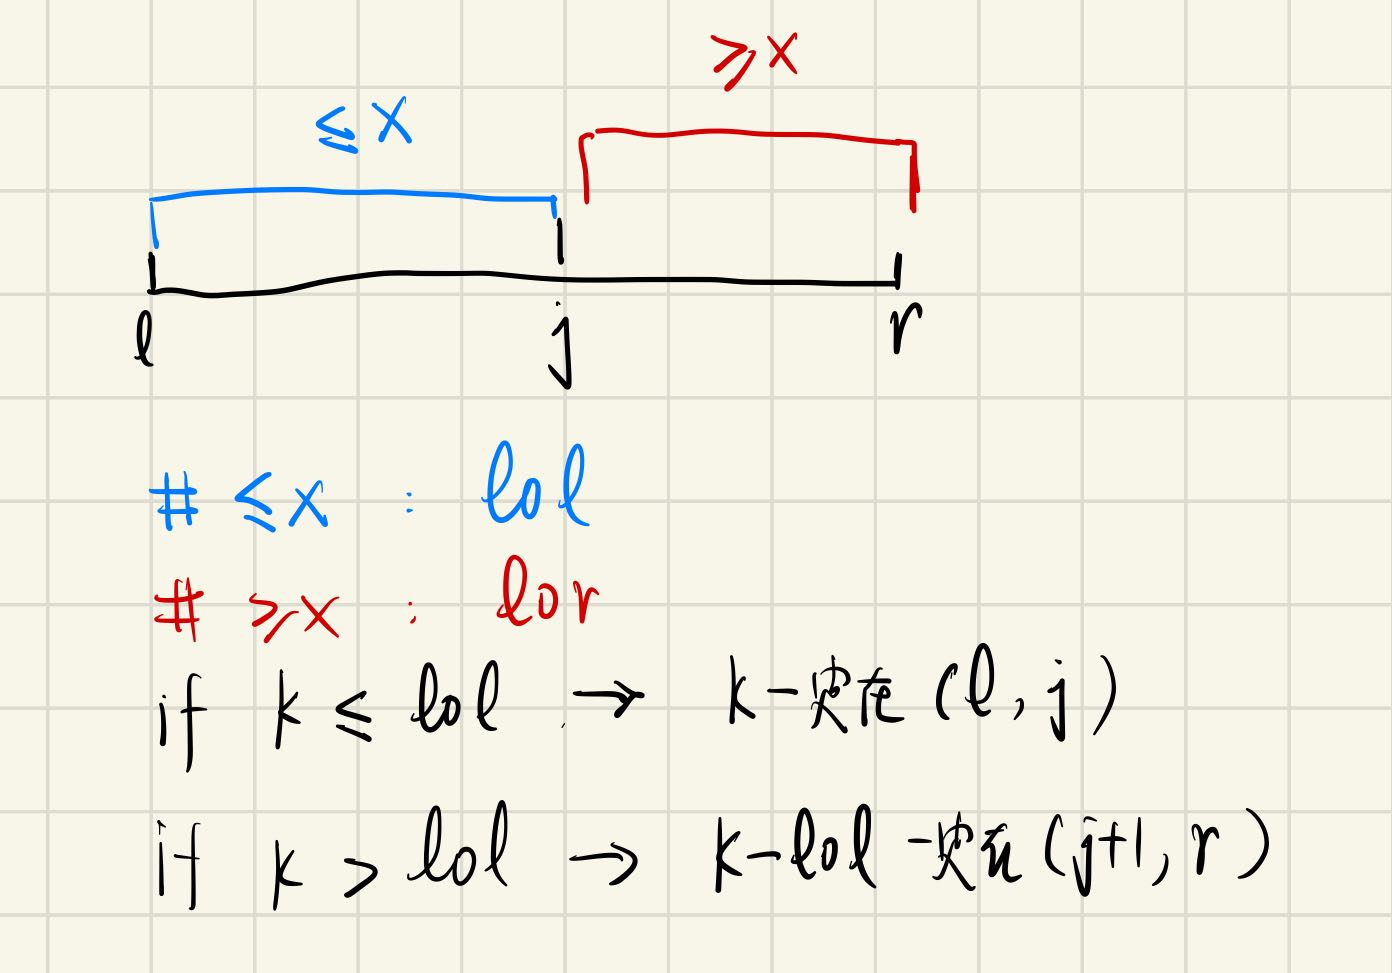 ≥x
≤x
l j r
# ≤x : lol
# ≥x : lor
if k ≤ lol → k一定在 (l, j)
if k > lol → k-lol 一定在 (j+1, r)